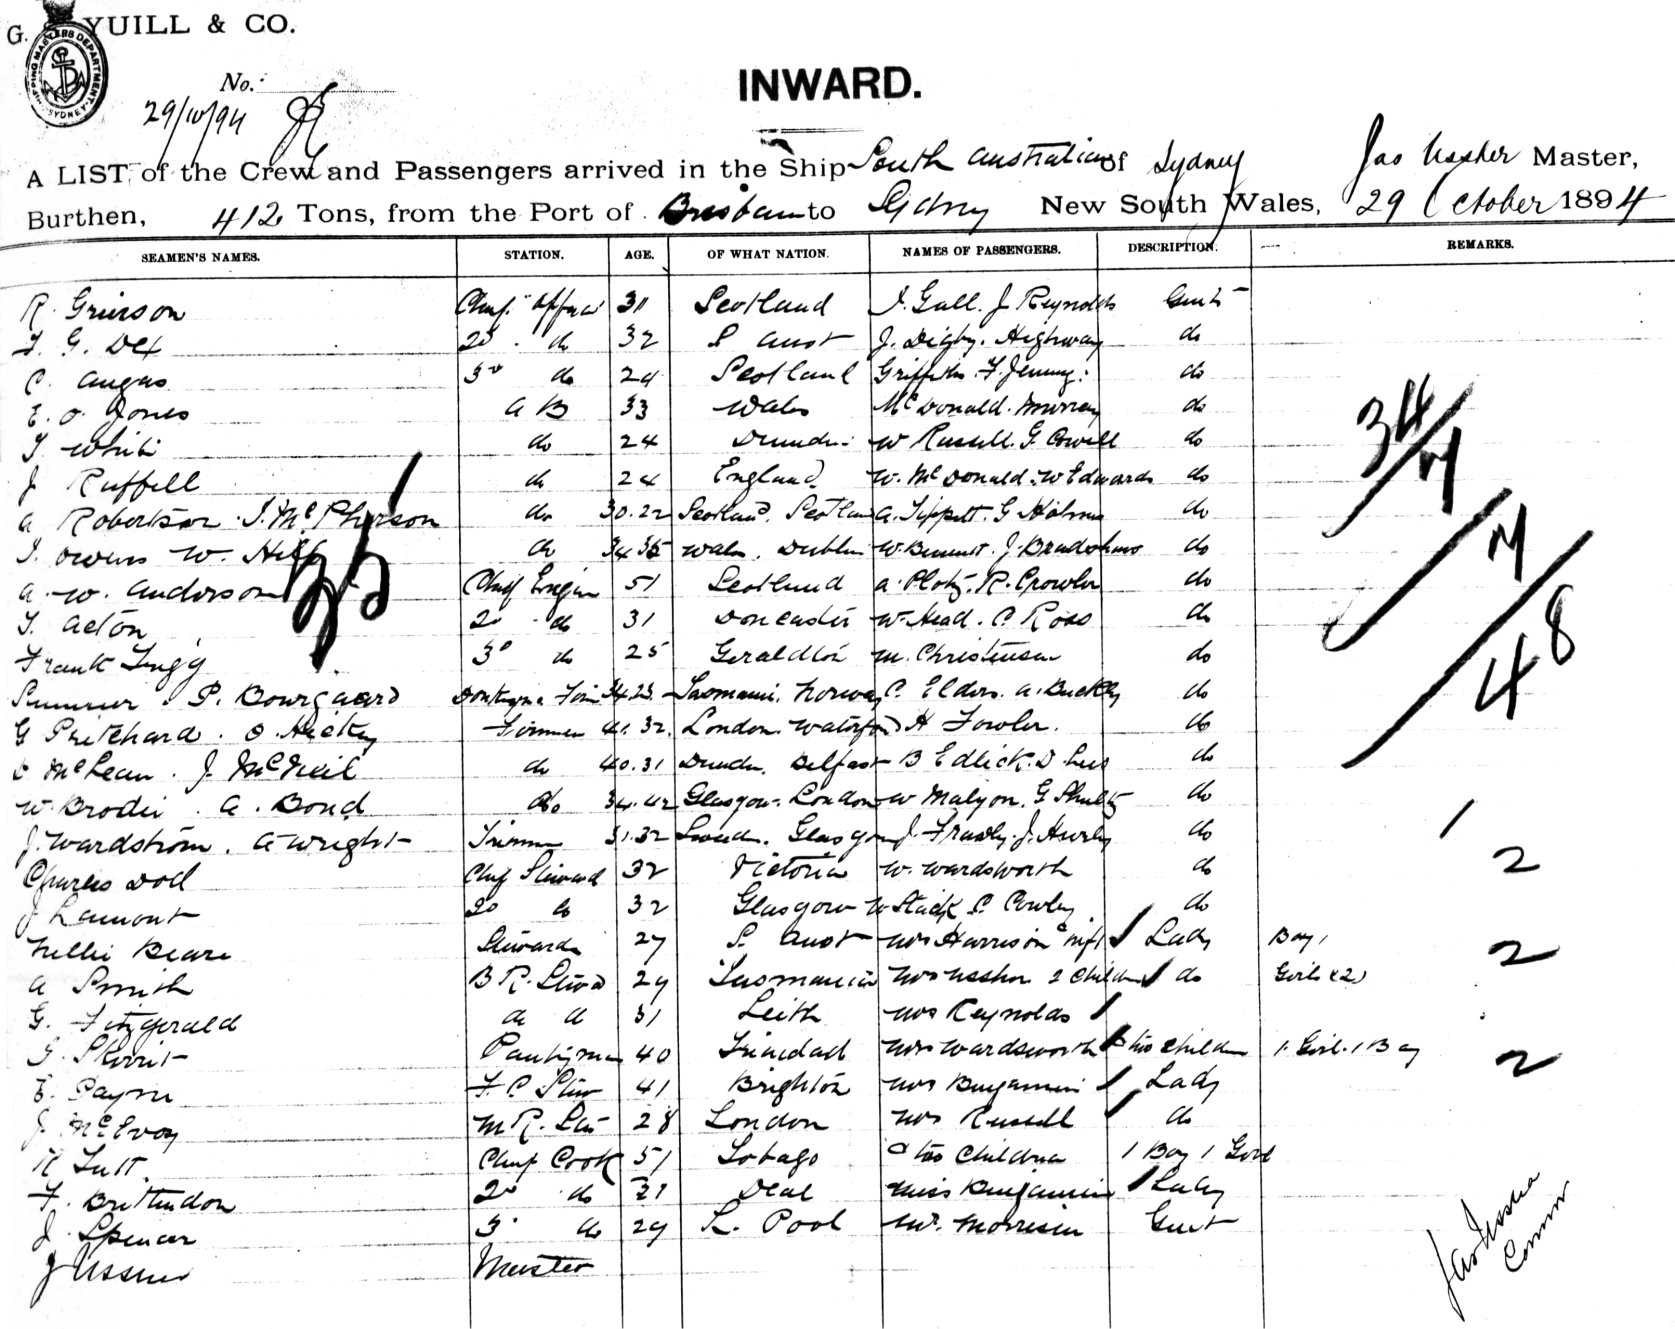 G. S. YUILL & CO.
SHIPPING MASTERS DEPARTMENT SYDNEY
No.
29/10/94
INWARD.
A LIST of the Crew and Passengers arrived in the Ship South Australian of Sydney Jas Ussher Master,
Burthen, 412 Tons, from the Port of Brisbane to Sydney New South Wales, 29 October 1894
SEAMEN'S NAMES. STATION. AGE. OF WHAT NATION. NAMES OF PASSENGERS. DESCRIPTION. REMARKS.
R. Grierson Chief Officer 31 Scotland Gall. J Reynolds Gents
2d do 32 S Aust J. Digby. Highway do
C. Angus 3d do 29 Scotland Griffiths. F. Jenny do
E. O. Jones A B 33 Wales McDonald. Murray do
T White do 24 Dundee W Russell. G. Cowell do
J Ruffell do 24 England W. McDonald. W Edwards do
A Robertson. J. McPherson do 30.22 Scotland. Scotland A. Tippett. G Holmes do
T. Owens W. do 34 35 Wales. Dublin W. Bennett. J. Bradshaw do
A. W. Anderson Chief Engin 51 Scotland A. R. Crowler do
T. Acton 2d do 31 Doncaster W. Head. C Ross do
Frank 3d do 25 Geraldton M. Christensen do
P. Bourgaard Donkeyman 34.23 Tasmania. Norway C. Elders. A. Buckley do
G Pritchard. O. Hickey Firemen 41.32. London. Waterford H Fowler. do
McLean. J. McNeil do 40.31 Dundee. Belfast B Edlick. D Lees do
W. Brodie. A. Bond do 34.42 Glasgow. London W Malyon. G Shultz do
J. Wardstrom. A Wright Trimmer 31.32 Glasgow J. J. Hurley do 1
Charles Dod Chief Steward 32 Victoria W. Wardsworth do 2
J Lamont 2d do 32 Glasgow W Stack C. Cowley do
Nellie Beare Stewards 27 S. Aust Mrs Harrison & Inft Lady Boy 1 2
A Smith B R. Stwd 29 Tasmania Mrs Ussher 2 Children do Girls (2)
G. Fitzgerald do do 31 Leith Mrs Reynolds
G. Skerrit Pantryman 40 Trinidad Mrs Wardsworth & two children 1 Girl. 1 Boy 2
E. Payne F. C Stew 41 Brighton Mrs Benjamin Lady
J. McEvoy M R. 28 London Mrs Russell do
Chief Cook 51 Tobago & two Children 1 Boy 1 Girl
F. Brittendon 2d do 21 Deal Miss Benjamin Lady
J. Spencer 3d do 29 L. Pool Mr. Morrison Gent
J Ussher Master
34
7
7
48
Jas Ussher